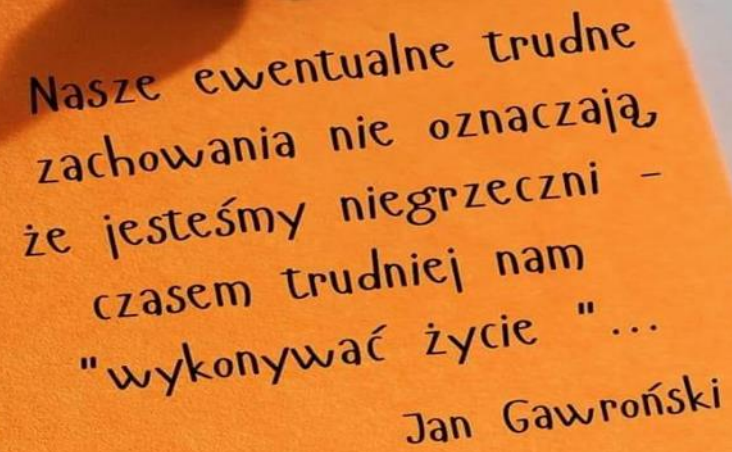 Nasze ewentualne trudne
zachowania nie oznaczają,
że jesteśmy niegrzeczni -
czasem trudniej nam
"wykonywać życie "...
Jan Gawroński